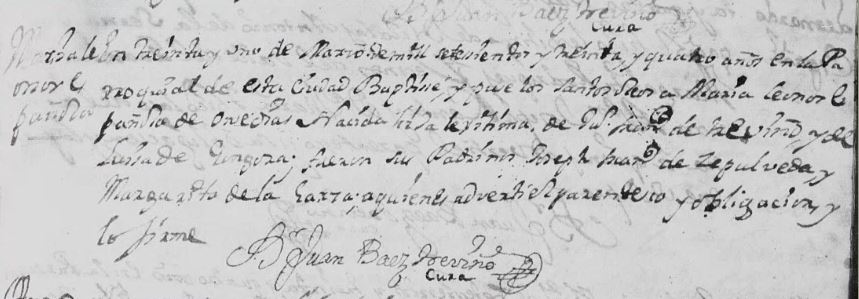 Br Juan Baez treviño
Cura
Maria le
onor Es
pañola
En treinta y uno de Março de mill setesientos y treinta, y quatro años en la Pa
rroquial de esta Ciudad Baptise, y puse los santos oleos a Maria leonor es
pañola de dias Nacida hija lexitima, de de treviño, y de
de Gongora; fueron sus Padrinos Joseph Juan de Sepulveda, y
Margarita de la Garza; a quienes adverti el parentesco y obligacion, y
lo firme
Br Juan Baez treviño
Cura